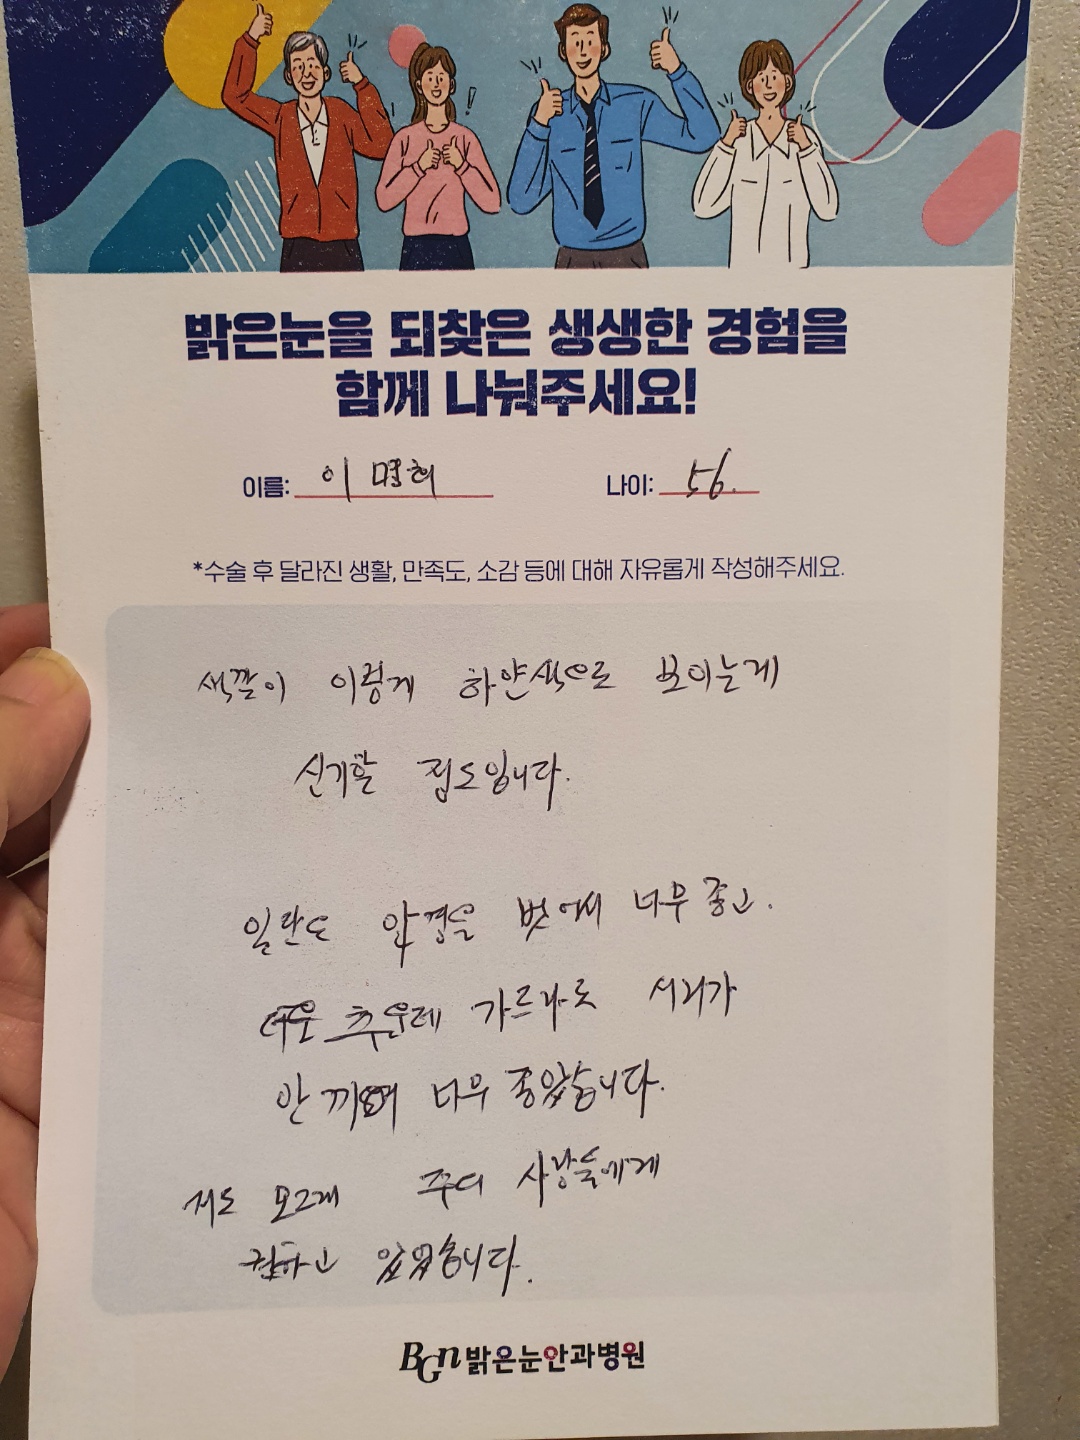 밝은눈을 되찾은 생생한 경험을
함께 나눠주세요!
이름: 이명희 나이: 56.
*수술 후 달라진 생활, 만족도, 소감 등에 대해 자유롭게 작성해주세요.
색깔이 이렇게 하얀색으로 보이는게
신기할 정도입니다.
일단도 안경을 벗어서 너무 좋고.
추운데 서리가
안 끼여 너무 좋았습니다.
저도 모르게 주위 사람들에게
권하고 있었습니다.
BGN밝은눈안과병원